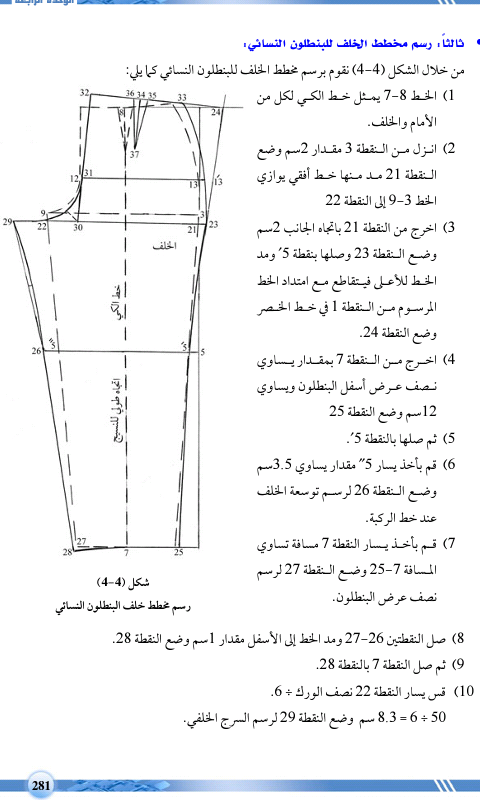 الوحدة الرابعة
• ثالثاً: رسم مخطط الخلف للبنطلون النسائي:
من خلال الشكل (4-4) نقوم برسم مخطط الخلف للبنطلون النسائي كما يلي:
1) الخط 8-7 يمثل خط الكي لكل من
الأمام والخلف.
2) انزل من النقطة 3 مقدار 2سم وضع
النقطة 21 مد منها خط أفقي يوازي
الخط 3-9 إلى النقطة 22
3) اخرج من النقطة 21 باتجاه الجانب 2سم
وضع النقطة 23 وصلها بنقطة 5′ ومد
الخط للأعلى فيتقاطع مع امتداد الخط
المرسوم من النقطة 1 في خط الخصر
وضع النقطة 24.
4) اخرج من النقطة 7 بمقدار يساوي
نصف عرض أسفل البنطلون ويساوي
12سم وضع النقطة 25
5) ثم صلها بالنقطة 5′.
6) قم بأخذ يسار 5″ مقدار يساوي 3.5سم
وضع النقطة 26 لرسم توسعة الخلف
عند خط الركبة.
7) قم بأخذ يسار النقطة 7 مسافة تساوي
المسافة 7-25 وضع النقطة 27 لرسم
نصف عرض البنطلون.
32
36
34
35
33
8
24
37
12
31
13
13′
9
3
29
22
30
21
23
الخلف
خط الكي
26
5″
5′
5
اتجاه طولي للنسيج
27
28
7
25
شكل (4-4)
رسم مخطط خلف البنطلون النسائي
8) صل النقطتين 26-27 ومد الخط إلى الأسفل مقدار 1سم وضع النقطة 28.
9) ثم صل النقطة 7 بالنقطة 28.
10) قس يسار النقطة 22 نصف الورك ÷ 6.
50 ÷ 6 = 8.3 سم وضع النقطة 29 لرسم السرج الخلفي.
281